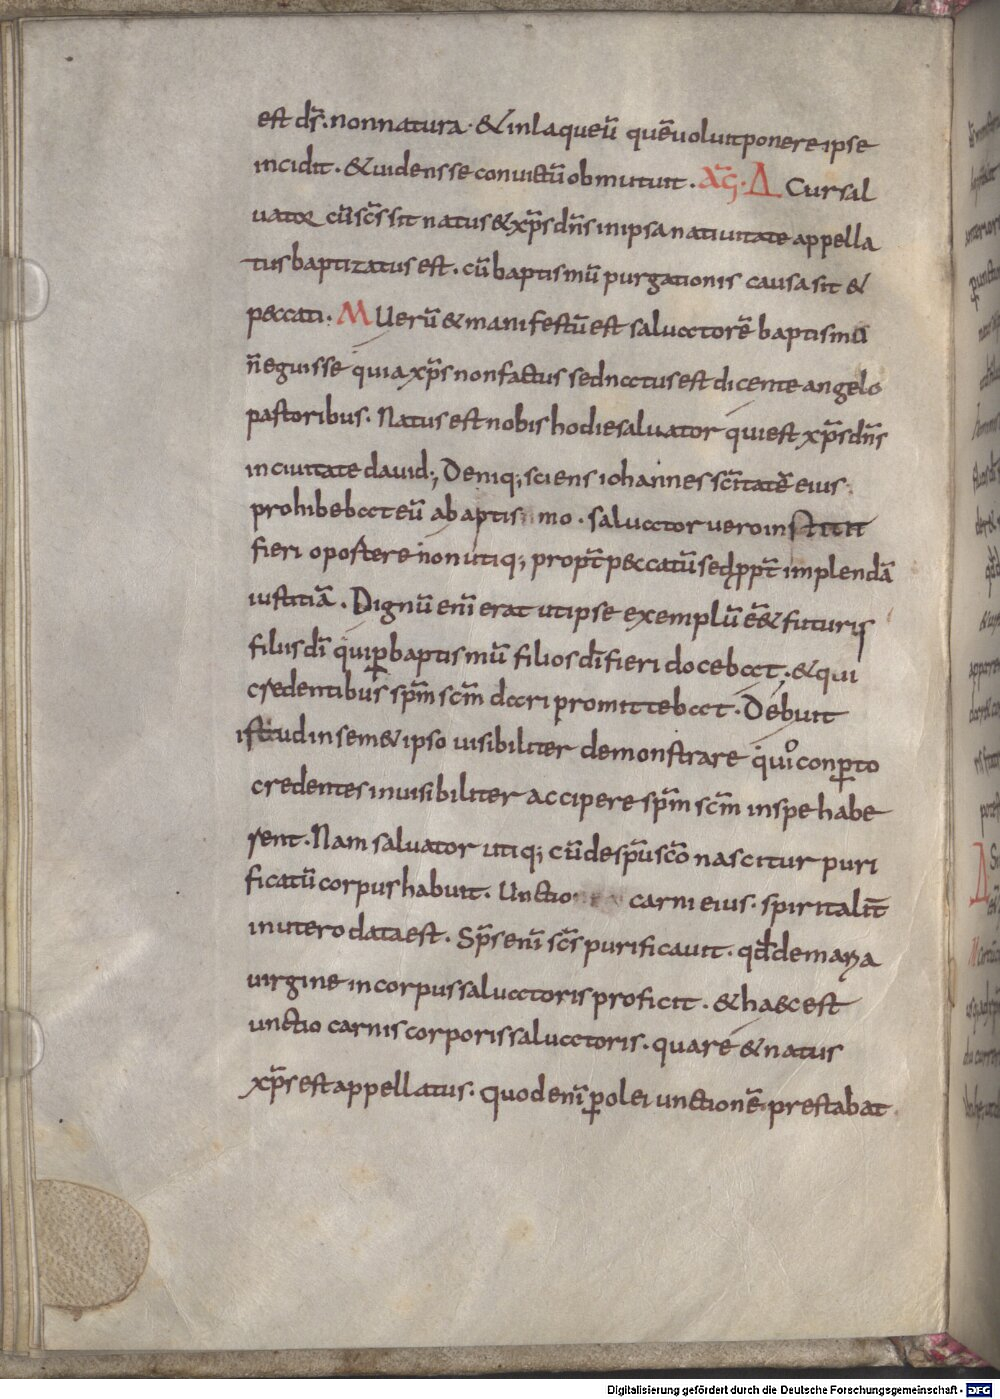 est dr̄. non natura. & in laqueū quē uoluit ponere ipse
incidit. & uidens se conuictū obmutuit. AḠ. Δ Cur sal
uator cū sc̄s sit natus & xp̄s dn̄s in ipsa natiuitate appella
tus baptizatus est. cū baptismū purgationis causa sit &
peccati. M Uerū & manifestū est saluatorē baptismū
n̄ eguisse quia xp̄s non factus sed natus est dicente angelo
pastoribus. Natus est nobis hodie saluator qui est xp̄s dn̄s
in ciuitate dauid; Deniq; sciens iohannes sc̄itatē eius
prohibebat eū a baptismo. saluator uero institit
fieri opostere non utiq; propt̄ peccatū sed ꝓpt̄ implendā
iustitiā. Dignū eni̅ erat ut ipse exemplū eēt & futuris
filiis dī qui ꝑ baptismū filios dī fieri docebat; & qui
credentibus sp̄m sc̄m dari promittebat. Debuit
istud in semet ipso uisibiliter demonstrare quo conꝑto
credentes inuisibiliter accipere sp̄m sc̄m in spe habe
rent. Nam saluator utiq; cū de sp̄u sc̄o nascitur puri
ficatū corpus habuit. Unctio carni eius. spiritalit̄
in utero data est. Sp̄s eni̅ sc̄s purificauit. qd̄ de maria
uirgine in corpus saluatoris proficit. & haec est
unctio carnis corporis saluatoris. quare & natus
xp̄s est appellatus. Quod eni̅ ꝑ olei unctionē prestabat
Digitalisierung gefördert durch die Deutsche Forschungsgemeinschaft - DFG